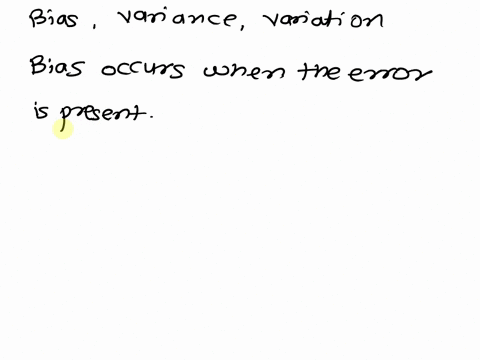 Bias, variance, variation
Bias occurs when the error
is present.